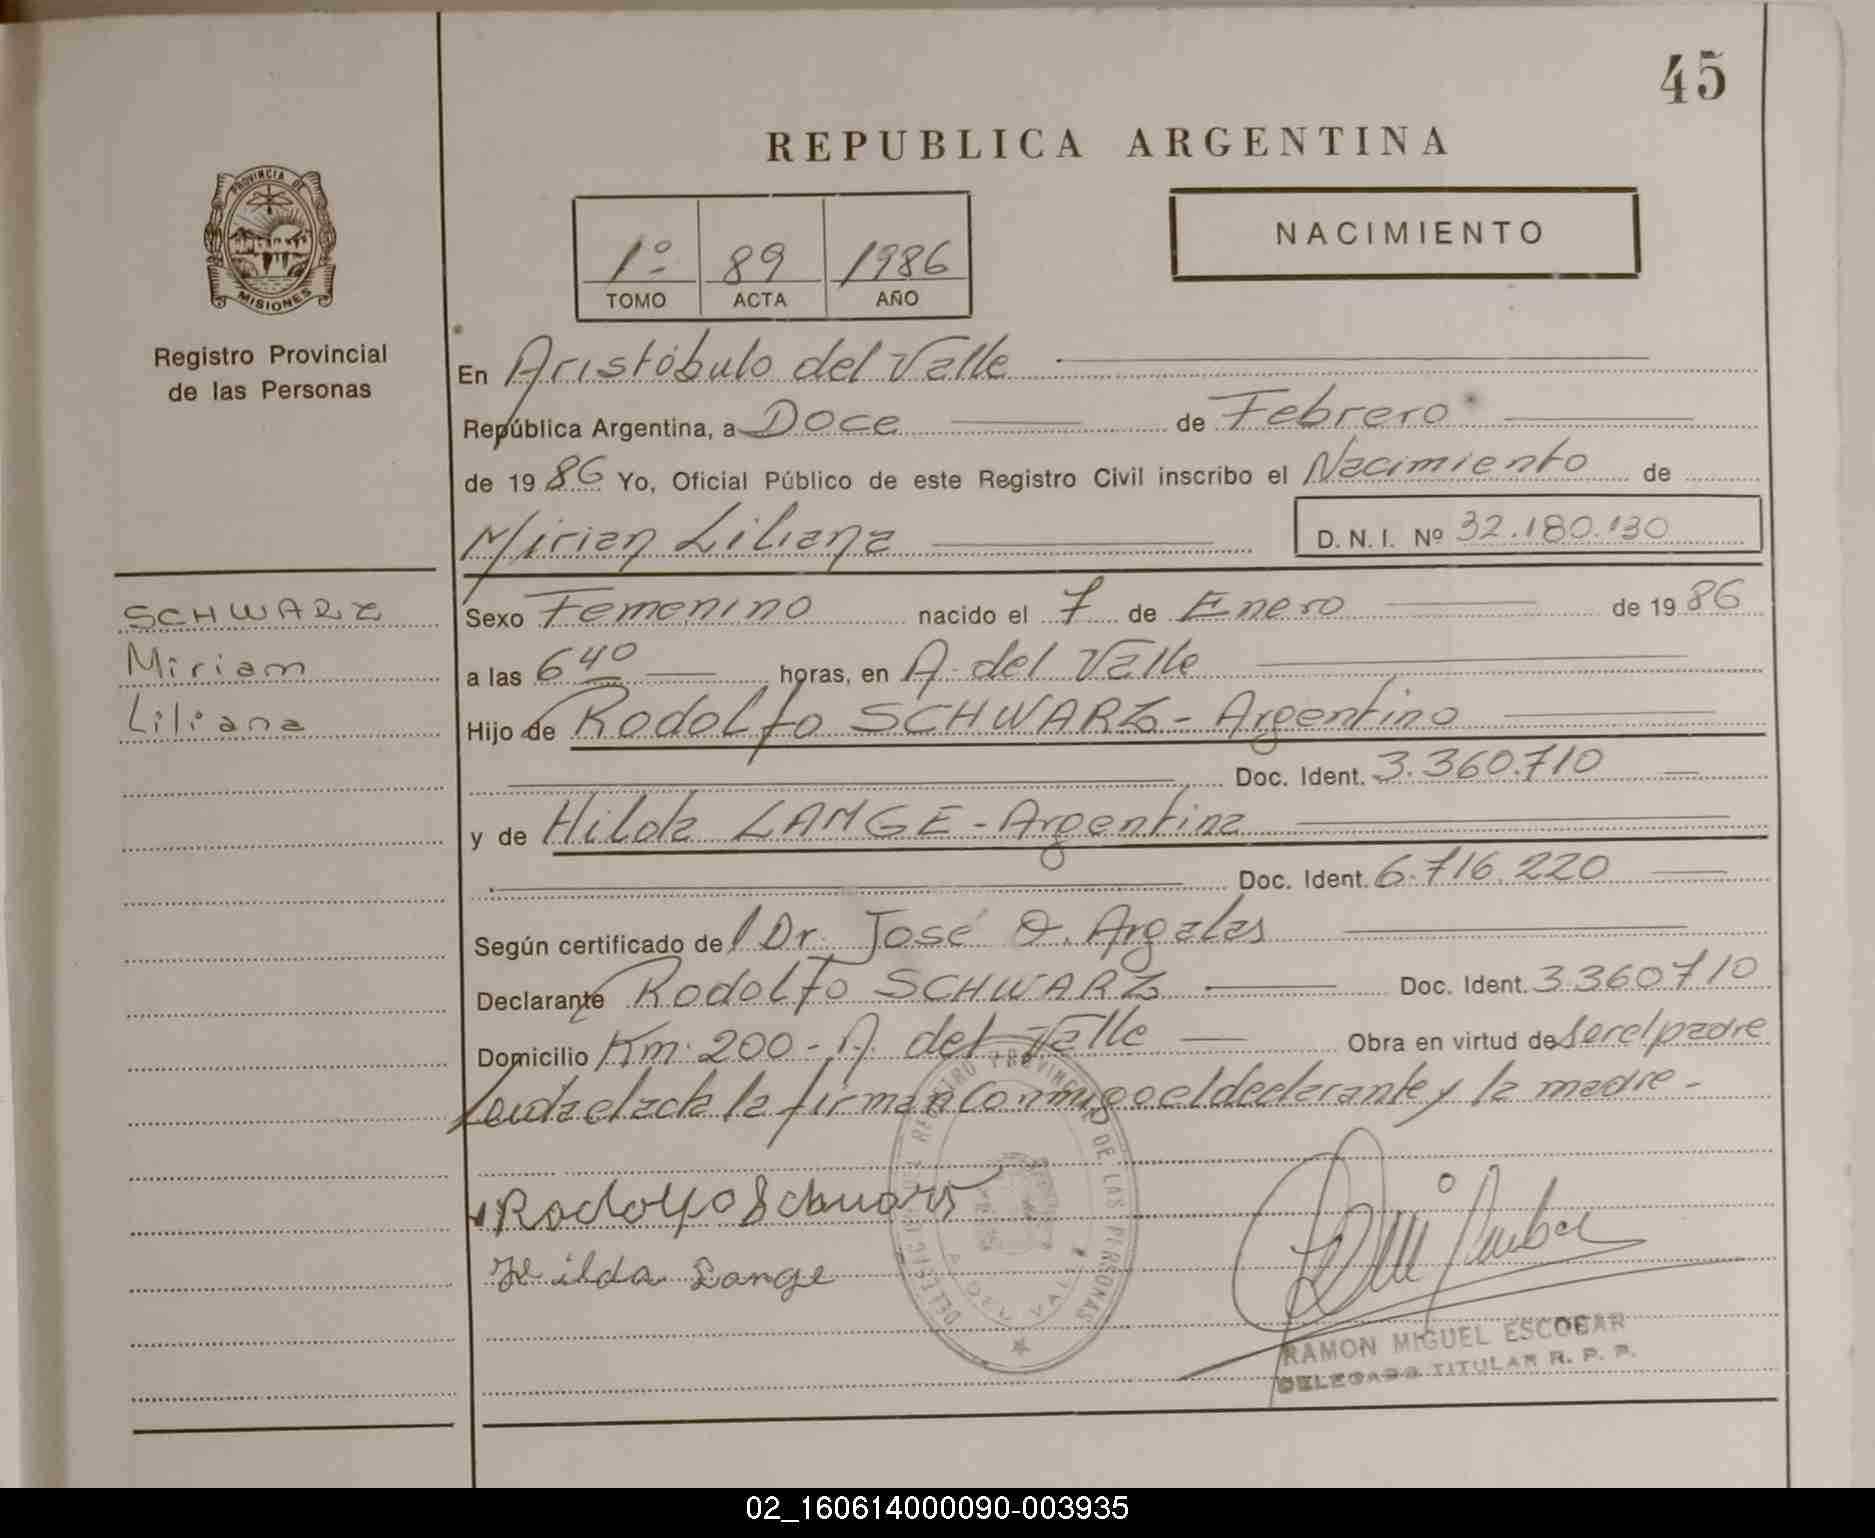 45
REPUBLICA ARGENTINA
PROVINCIA DE
MISIONES
Registro Provincial
de las Personas
1º 89 1986
TOMO ACTA AÑO
NACIMIENTO
En Aristóbulo del Valle
República Argentina, a Doce de Febrero
de 1986 Yo, Oficial Público de este Registro Civil inscribo el Nacimiento de
Mirian Liliana D. N. I. Nº 32.180.130
SCHWARZ
Miriam
Liliana
Sexo Femenino nacido el 7 de Enero de 1986
a las 6 40 horas, en A. del Valle
Hijo de Rodolfo SCHWARZ - Argentino
Doc. Ident. 3.360.710
y de Hilda LANGE - Argentina
Doc. Ident. 6.716.220
Según certificado del Dr. José O. Argalas
Declarante Rodolfo SCHWARZ Doc. Ident. 3360710
Domicilio Km. 200 - A. del Valle Obra en virtud de ser el padre
Leida el acta la firman conmigo el declarante y la madre -
Rodolfo Schuars
Hilda Lange
REGISTRO PROVINCIAL DE LAS PERSONAS
A. DEL VALLE
RAMON MIGUEL ESCOBAR
DELEGADO TITULAR R. P. P.
02_160614000090-003935